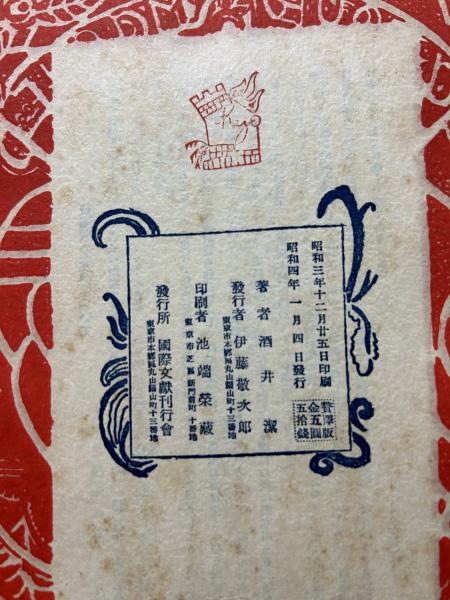 昭和三年十二月廿五日印刷
昭和四年 一月四日發行
贅澤版
金五圓
五拾錢
著者 酒井 潔
發行者 伊藤敬次郎
東京市本郷區丸山福山町十三番地
印刷者 池端榮藏
東京市芝區新門前町十番地
發行所 國際文獻刊行會
東京市本郷區丸山福山町十三番地